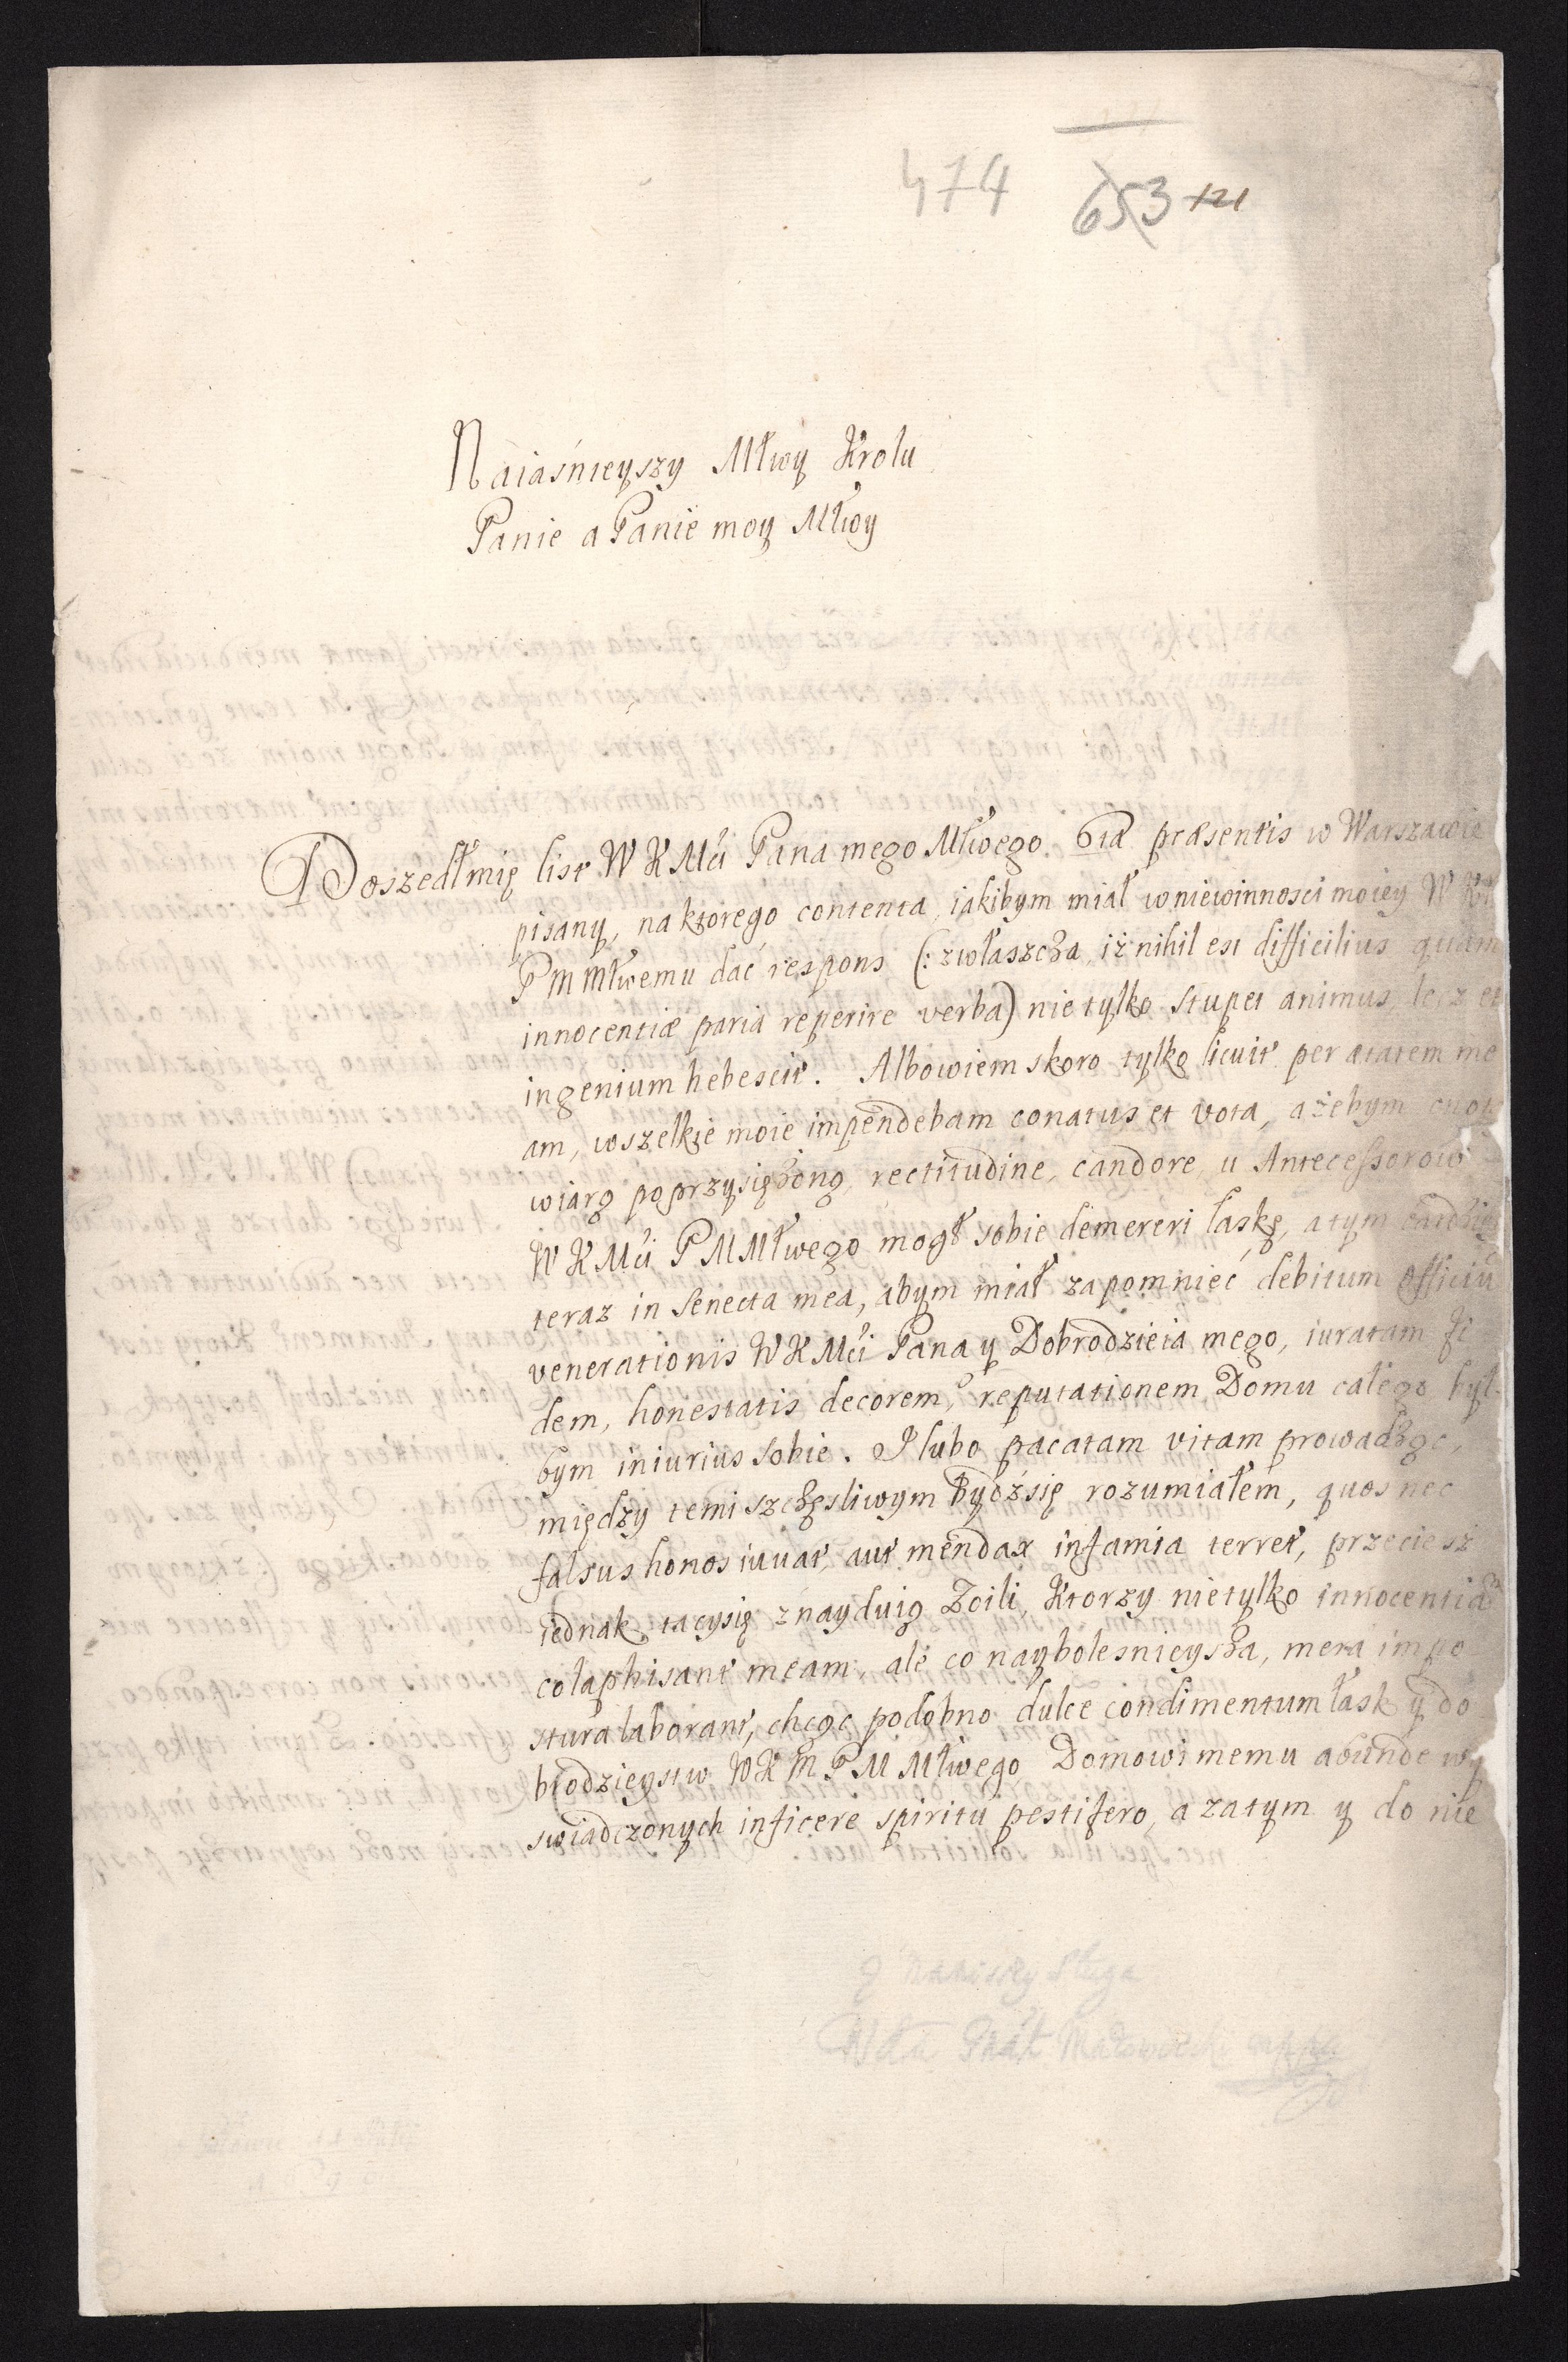 474 653 121
Naiasnieyszy Młwy Krolu
Panie a Panie moy Młwy
Doszedł mię list W K Mći Pana mego Młwego 6ta præsentis w Warszawie
pisany, na ktorego contenta, iakibym miał w niewinnosci moiey W K
P M Młwemu dać respons (: zwłaszcza, iż nihil est difficilius quam
innocentiæ paria reperire verba) nie tylko stupet animus, lecz et
ingenium hebescit. Albowiem skoro tylko licuit per ætatem me
am, wszelkie moie impendebam conatus et vota, ażebym
wiarą poprzysiężoną, rectitudine, candore, u Antecessorow
W K Mći P M Młwego mogł sobie demereri łaskę, a tym bardziey
teraz in senecta mea, abym miał zapomnieć debitum officiū
venerationis W K Mći Pana y Dobrodzieia mego, iuratam fi
dem, honestatis decorem, reputationem Domu całego był
bym iniurius sobie. I lubo pacatam vitam prowadząc,
między temi szczęsliwym bydź się rozumiałem, quos nec
falsus honos iuvat, aut mendax infamia terret, przeciesz
iednak tacy się znayduią Zoili, Ktorzy nie tylko innocentiā
colaphisant meam, ale co naybolesnieysza, mera impo
stura laborant, chcąc podobno dulce condimentum łask y do
brodzieystw W K M P M Młwego Domowi memu abunde wy
swiadczonych inficere spiritu pestifero, a zatym y do nie